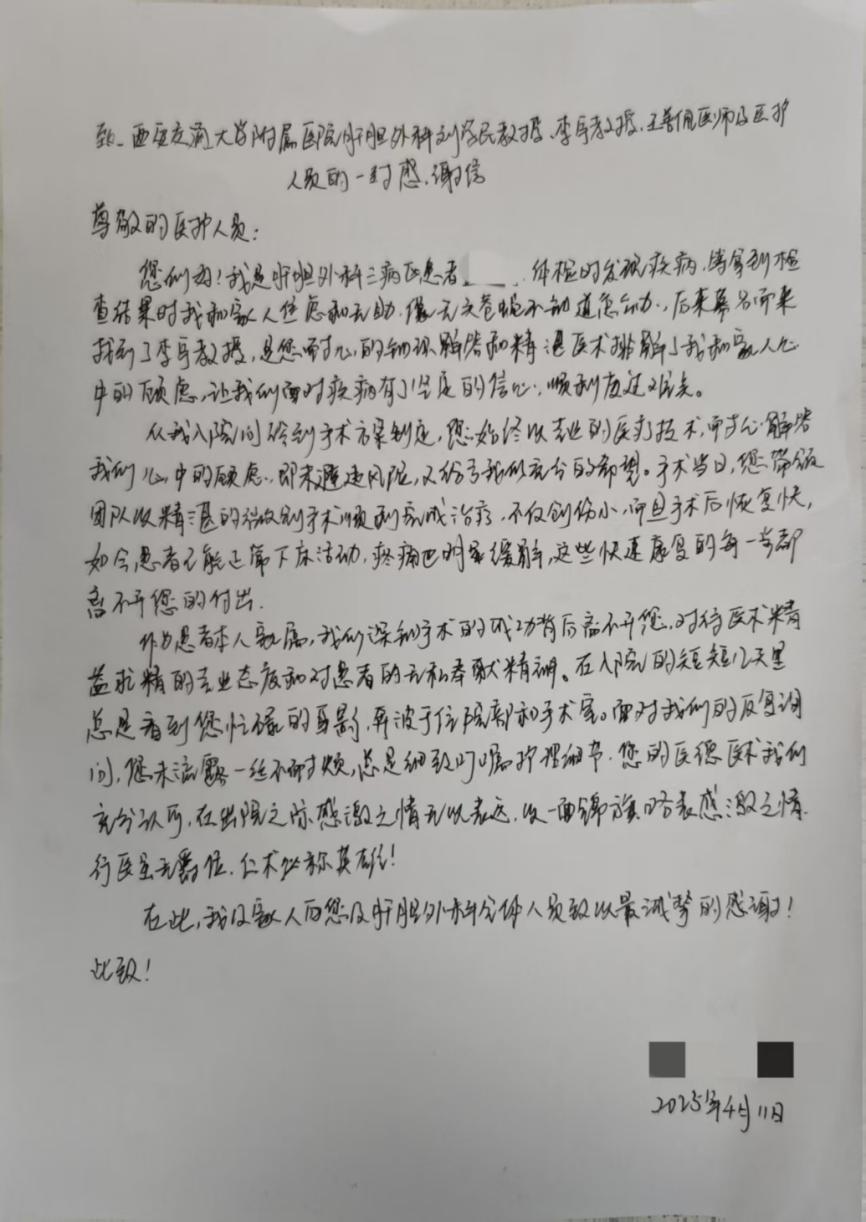 致、西安交通大学附属医院肝胆外科刘学民教授、李宇教授、王善佩医师及医护
人员的一封感谢信
尊敬的医护人员：
您们好！我是肝胆外科三病区患者 体检时发现疾病，当拿到检
查结果时我和家人焦虑和无助，像无头苍蝇不知道怎么办，后来慕名而来
找到了李宇教授，是您耐心的解答和精湛医术排解了我和家人心
中的顾虑，让我们面对疾病有了坚定的信心，顺利度过难关。
从我入院问诊到手术方案制定，您始终以专业的医疗技术，耐心解答
我们心中的顾虑，即未避违风险，又给予我们充分的希望。手术当日，您带领
团队以精湛的微创手术顺利完成治疗，不仅创伤小，而且手术后恢复快，
如今患者已能正常下床活动，疼痛也明显缓解，这些快速康复的每一步都
离不开您的付出。
作为患者本人家属，我们深知手术的成功背后离不开您，对待医术精
益求精的专业态度和对患者的无私奉献精神。在入院的短短12天里
总是看到您忙碌的身影，奔波于住院部和手术室。面对我们的反复询
问，您未流露一丝不耐烦，总是细致叮嘱护理细节，您的医德医术我们
充分认可，在出院之际感激之情无以表达，以一面锦旗略表感激之情，
行医虽无爵位，仁术必称英雄！
在此，我及家人向您及肝胆外科全体人员致以最诚挚的感谢！
此致！
2025年4月11日